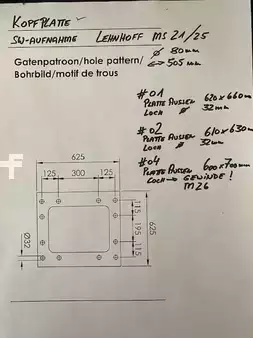 KOPFPLATTE
SW-AUFNAHME LEHNHOFF MS 21/25
Ø 80mm
Gatenpatroon/hole pattern/ ⇔ 505mm
Bohrbild/motif de trous
#01
PLATTE AUSSEN 620x660mm
LOCH Ø 32mm
#02
PLATTE AUSSEN 610x630mm
LOCH Ø 32mm
#04
PLATTE AUSSEN 600x700mm
LOCH → GEWINDE!
M26
625
125 300 125
115
195
115
625
Ø32